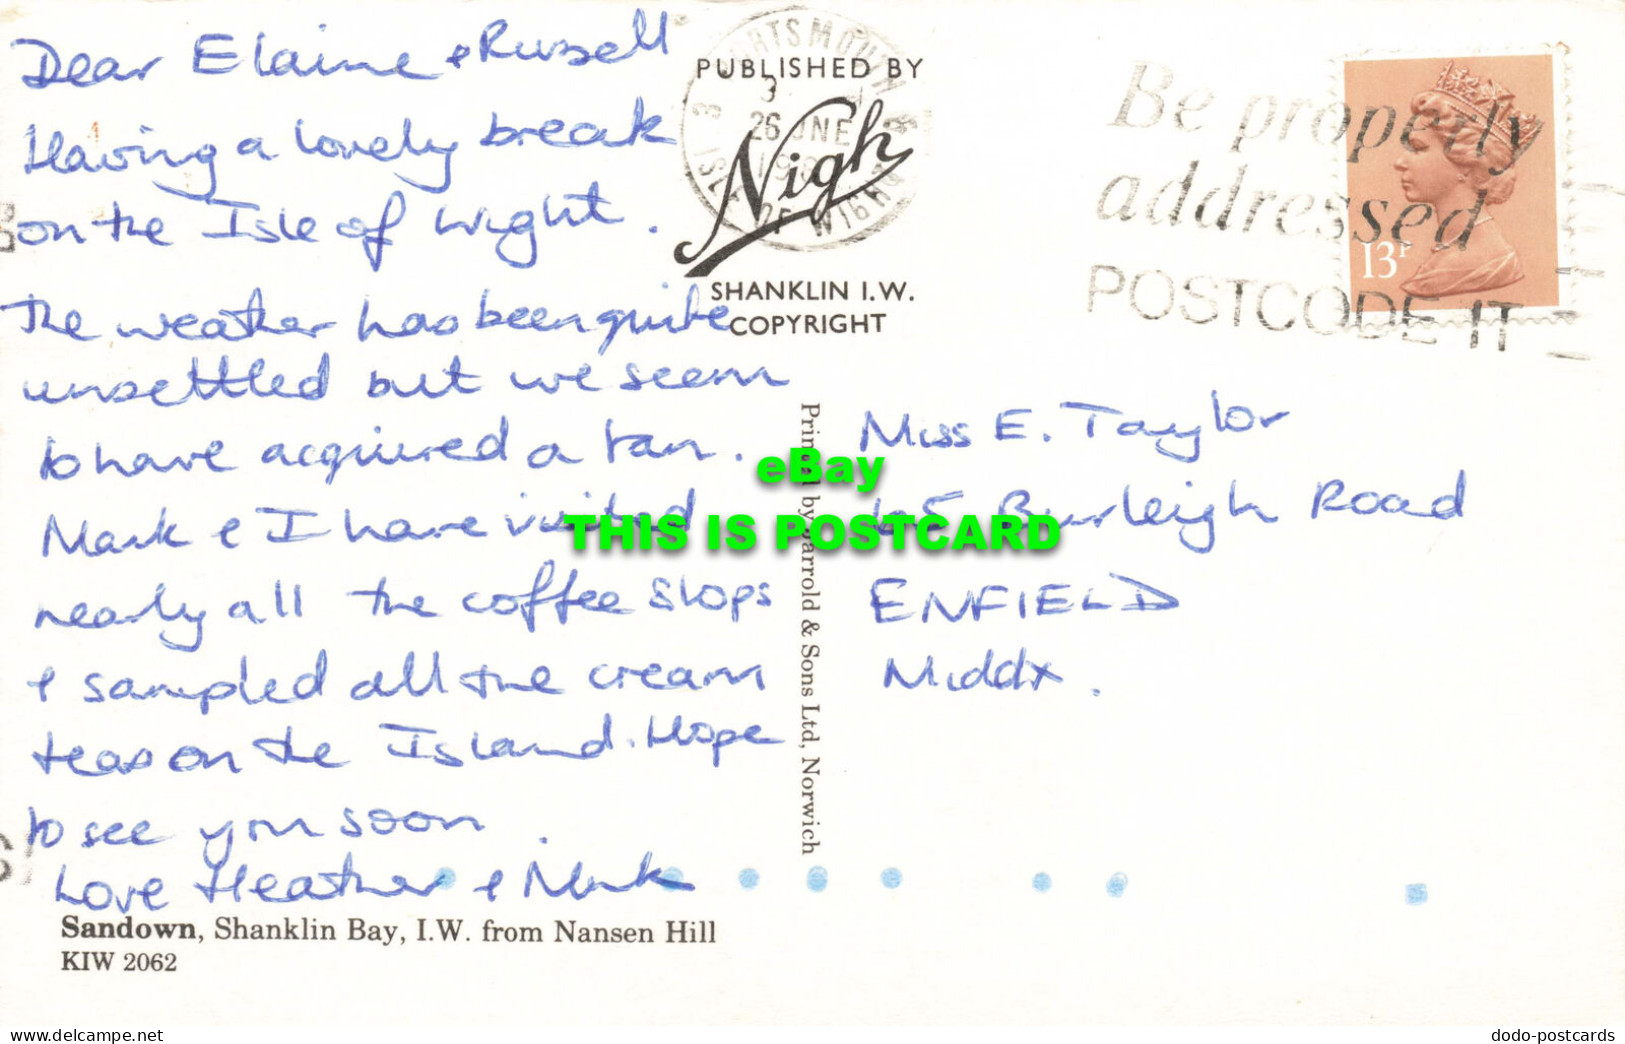 Dear Elaine & Russell
Having a lovely break
on the Isle of Wight.
The weather has been quite
unsettled but we seem
to have acquired a tan.
Mark & I have visited
nearly all the coffee shops
& sampled all the cream
teas on the Island. Hope
to see you soon.
Love Heather & Mark
Sandown, Shanklin Bay, I.W. from Nansen Hill
KIW 2062
PUBLISHED BY
Nigh
SHANKLIN I.W.
COPYRIGHT
PORTSMOUTH &
ISLE OF WIGHT
3
26 JNE
Be properly
addressed
POSTCODE IT
13P
Printed by Jarrold & Sons Ltd, Norwich
Miss E. Taylor
Burleigh Road
ENFIELD
Middx.
eBay
THIS IS POSTCARD
www.delcampe.net
dodo-postcards